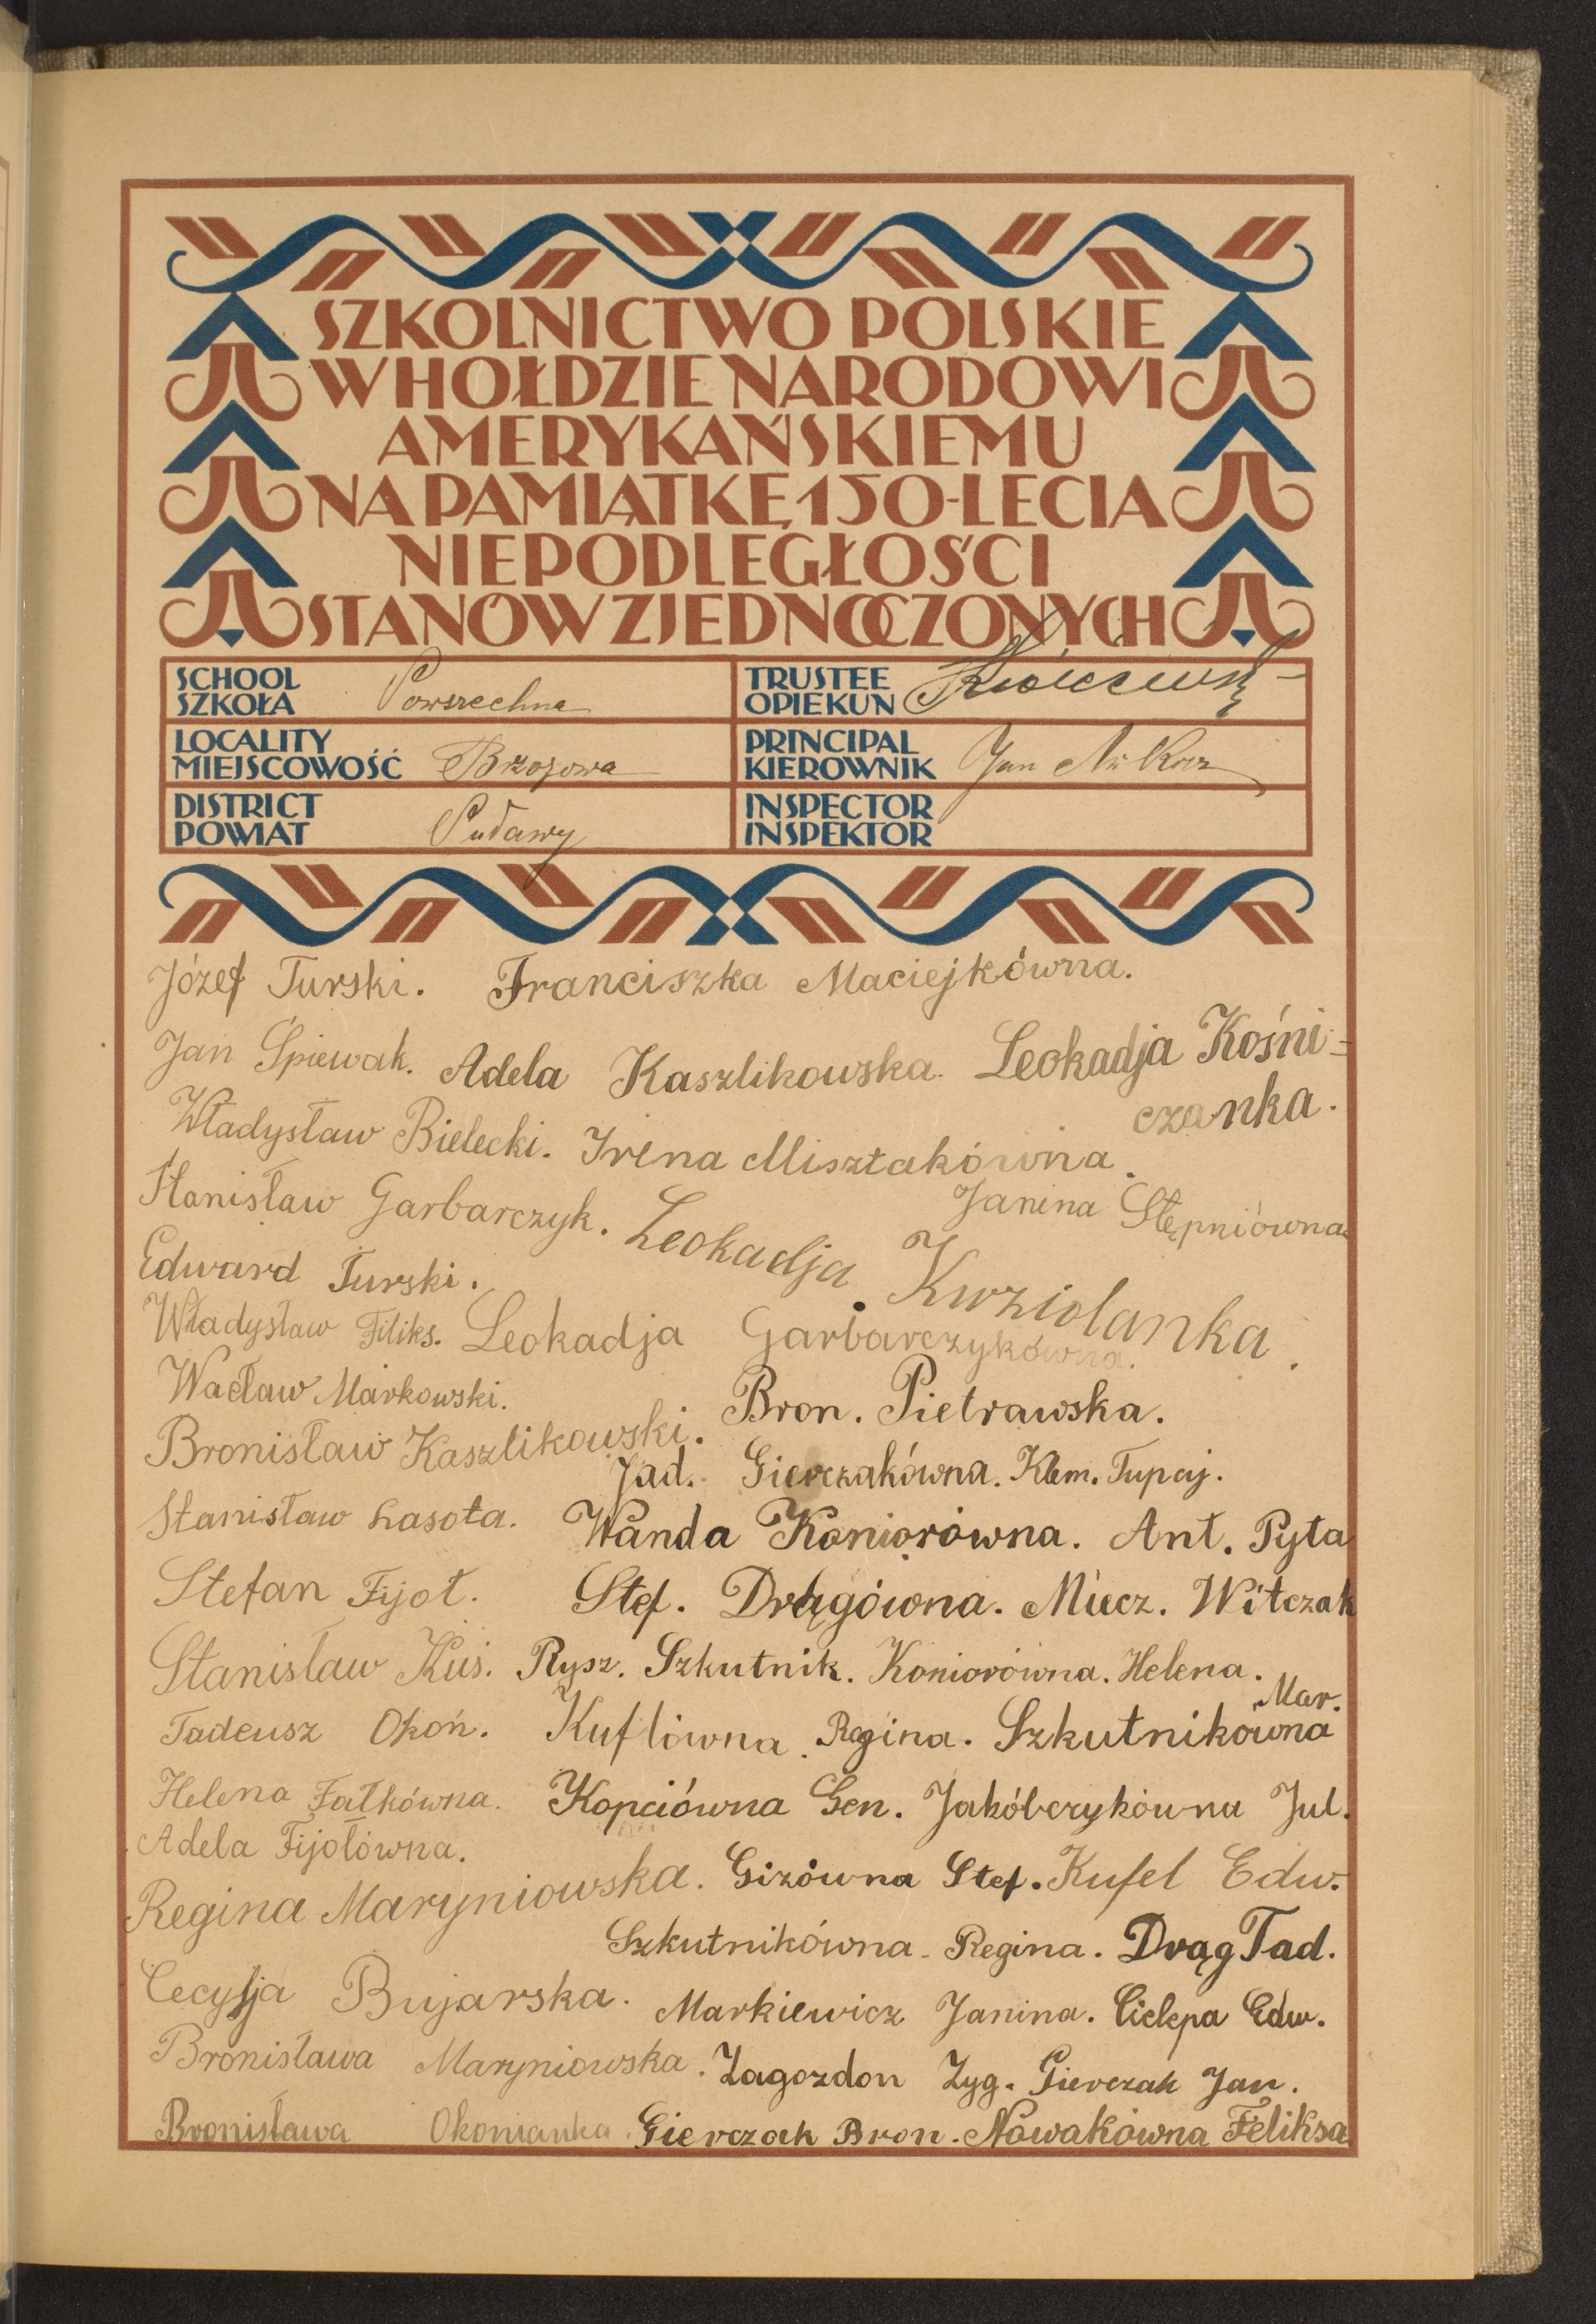 SZKOLNICTWO POLSKIE
W HOŁDZIE NARODOWI
AMERYKAŃSKIEMU
NA PAMIĄTKĘ 150-LECIA
NIEPODLEGŁOŚCI
STANÓW ZJEDNOCZONYCH
SCHOOL
SZKOŁA Powszechna
LOCALITY
MIEJSCOWOŚĆ Brzozowa
DISTRICT
POWIAT Puławy
TRUSTEE
OPIEKUN
PRINCIPAL
KIEROWNIK Jan
INSPECTOR
INSPEKTOR
Józef Turski. Franciszka Maciejkówna.
Jan Śpiewak. Adela Kaszlikowska. Leokadja Kośni=
czanka.
Władysław Bielecki. Irena Misztakówna.
Janina Stępniówna
Stanisław Garbarczyk. Leokadja Kurziolanka.
Edward Turski.
Władysław Filiks. Leokadja Garbarczykówna.
Wacław Markowski. Bron. Pietrawska.
Bronisław Kaszlikowski.
Jad. Gierczakówna. Klem. Tupaj.
Stanisław Lasota. Wanda Koniorówna. Ant. Pyta
Stefan Fijoł. Stef. Drągówna. Miecz. Witczak
Stanisław Kuś. Rysz. Szkutnik. Koniorówna. Helena.
Tadeusz Okoń. Kuflówna Regina. Szkutnikówna Mar.
Helena Fatkówna. Kopciówna Gen. Jakóbczykówna Jul.
Adela Fijołówna.
Regina Maryniowska. Gizówna Stef. Kufel Edw.
Szkutnikówna Regina. Drąg Tad.
Cecylja Bujarska. Markiewicz Janina. Cielepa Edw.
Bronisława Maryniowska. Zagozdon Zyg. Gierczak Jan.
Bronisława Okonianka. Gierczak Bron. Nowakówna Feliksa